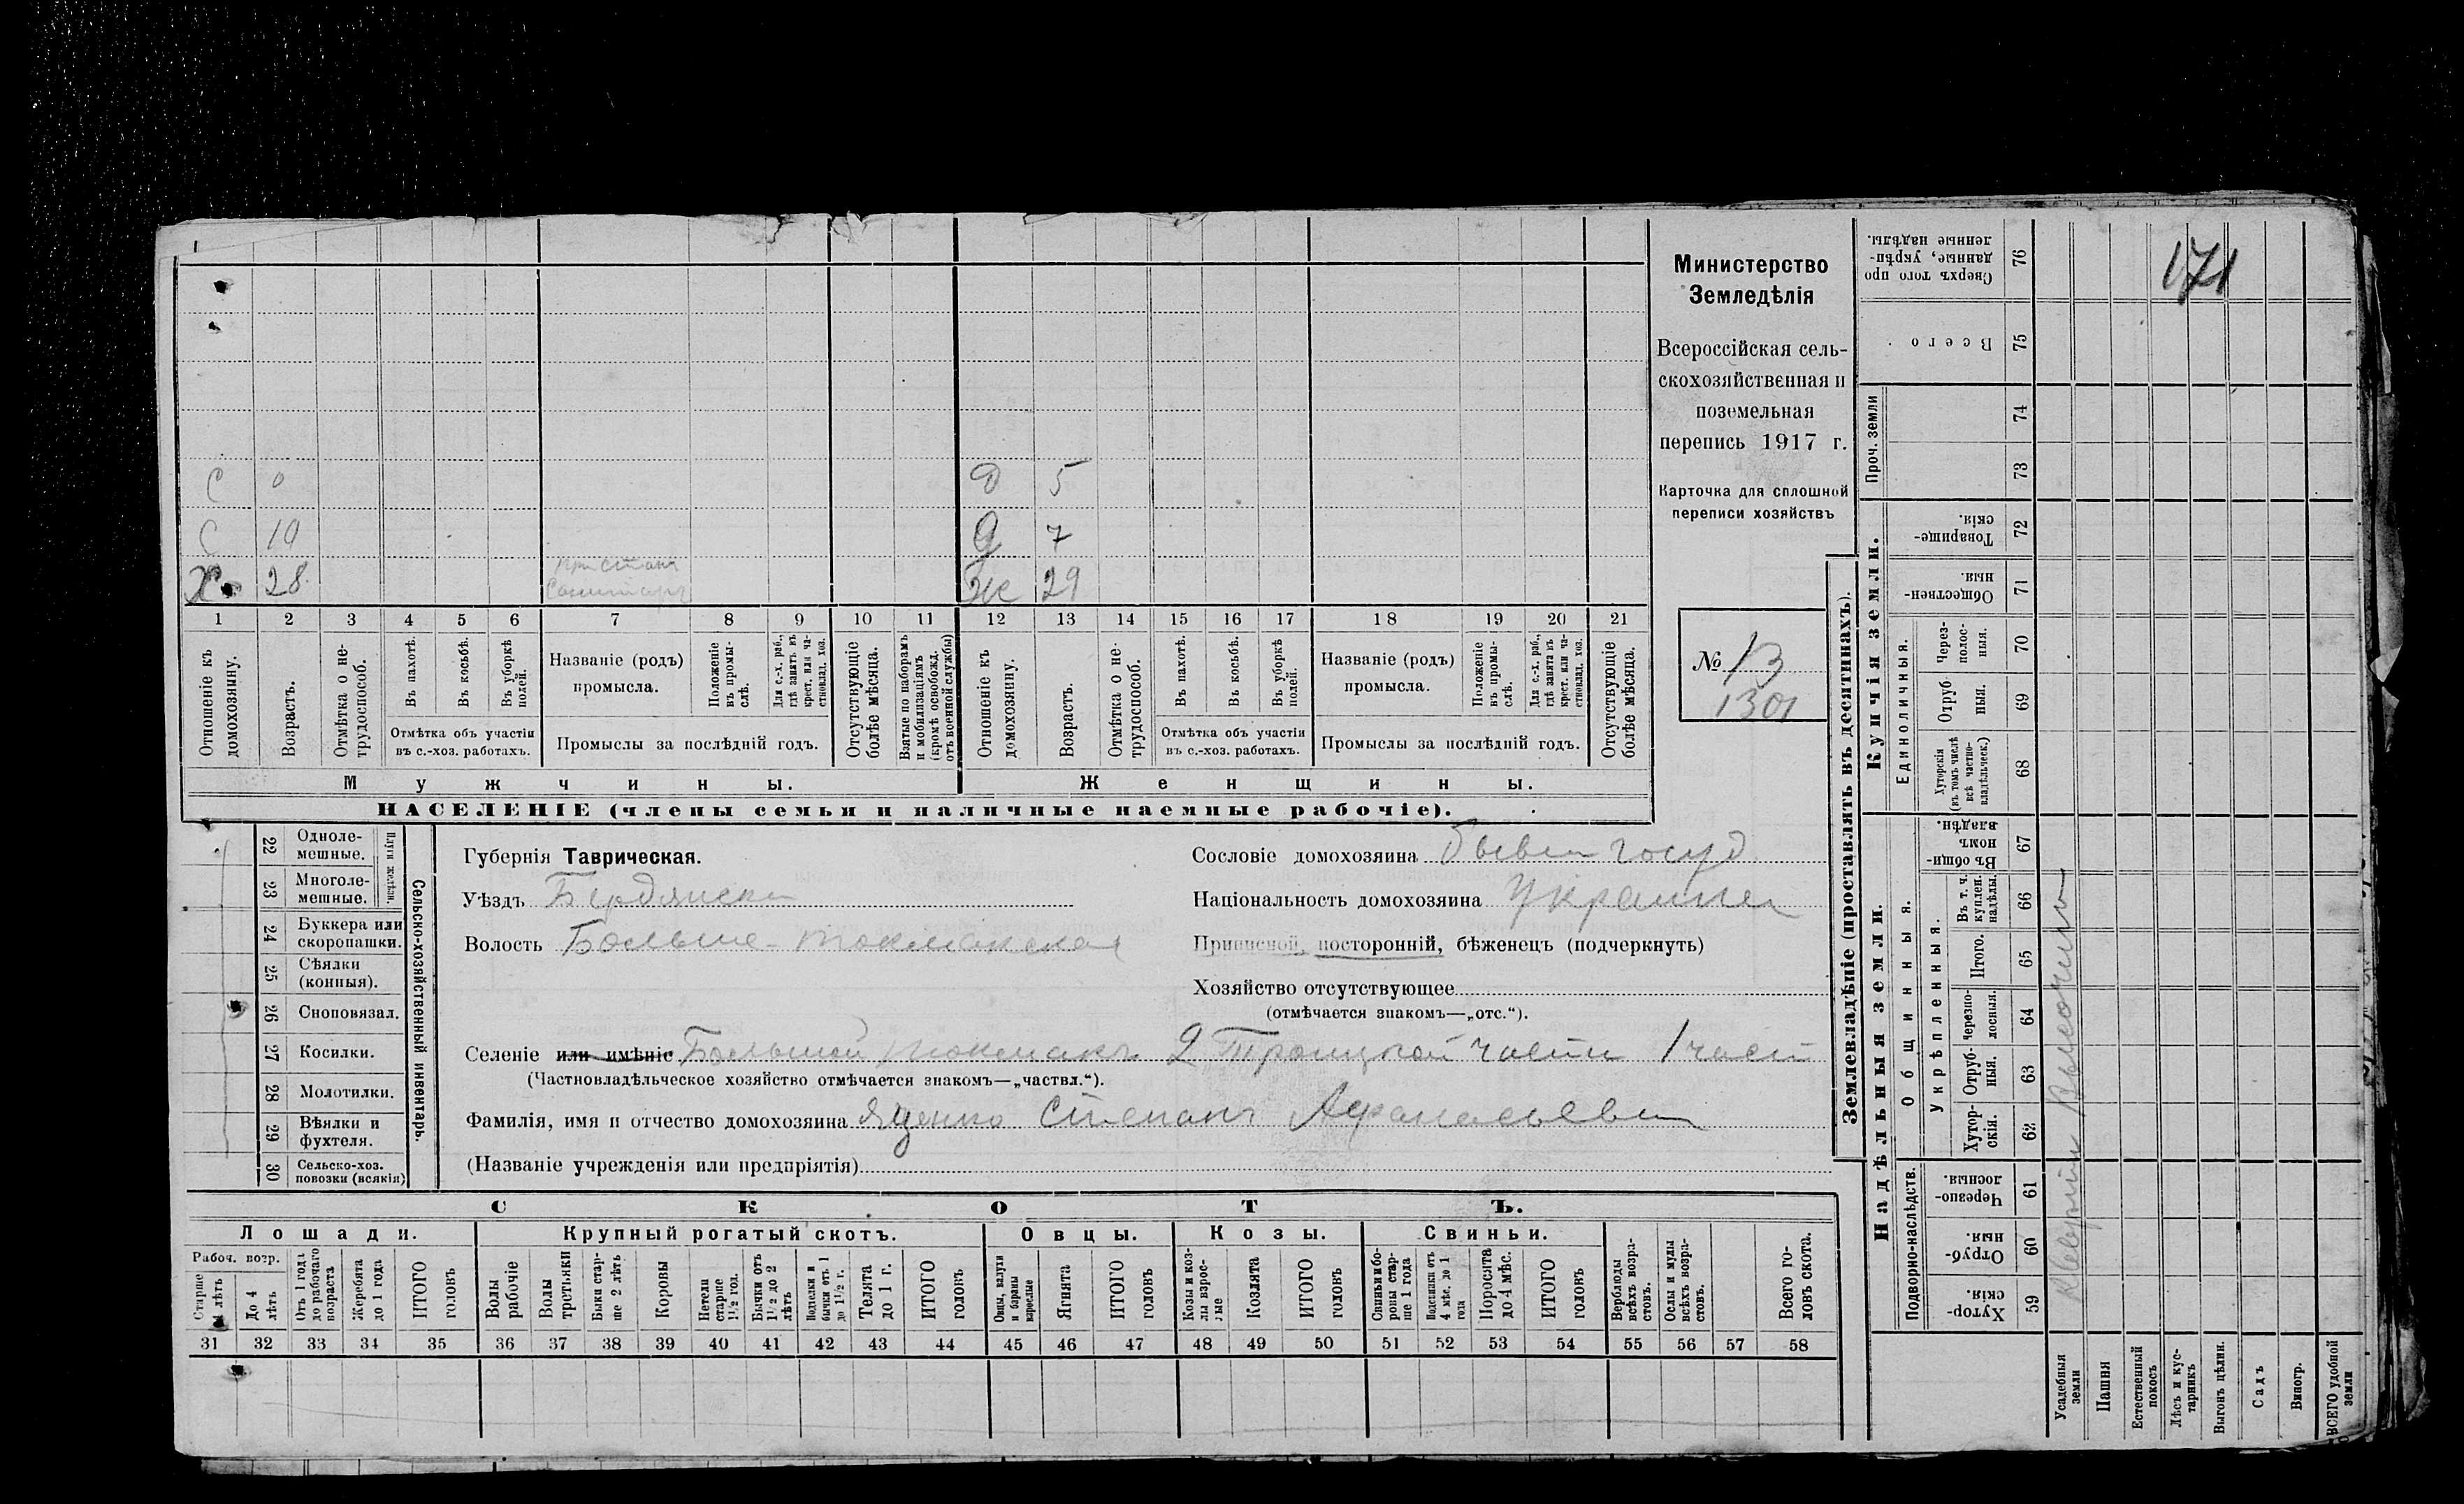 171
Министерство
Земледѣлія
Всероссійская сель-
скохозяйственная и
поземельная
перепись 1917 г.
Карточка для сплошной
переписи хозяйствъ
№ 13
1301
С 0 Д 5
С 10 Д 7
Х 28 Санитаръ Ж 29
1 2 3 4 5 6 7 8 9 10 11 12 13 14 15 16 17 18 19 20 21
Отношеніе къ домохозяину.
Возрастъ.
Отмѣтка о не-трудоспособ.
Въ пахотѣ.
Въ косьбѣ.
Въ уборкѣ полей.
Отмѣтка объ участіи
въ с.-хоз. работахъ.
Названіе (родъ)
промысла.
Положеніе въ промы-слѣ.
Для с.-х. раб., гдѣ занятъ въ крест. или ча-стновлад. хоз.
Промыслы за послѣдній годъ.
Отсутствующіе болѣе мѣсяца.
Взятые по наборамъ и мобилизаціямъ (кромѣ освобожд. отъ военной службы)
Отношеніе къ домохозяину.
Возрастъ.
Отмѣтка о не-трудоспособ.
Въ пахотѣ.
Въ косьбѣ.
Въ уборкѣ полей.
Отмѣтка объ участіи
въ с.-хоз. работахъ.
Названіе (родъ)
промысла.
Положеніе въ промы-слѣ.
Для с.-х. раб., гдѣ занята въ крест. или ча-стновлад. хоз.
Промыслы за послѣдній годъ.
Отсутствующіе болѣе мѣсяца.
Мужчины. Женщины.
НАСЕЛЕНІЕ (члены семьи и наличные наемные рабочіе).
22 Одноле-мешные.
23 Многоле-мешные.
Плуги желѣзн.
24 Буккера или скоропашки.
25 Сѣялки (конныя).
26 Сноповязал.
27 Косилки.
28 Молотилки.
29 Вѣялки и фухтеля.
30 Сельско-хоз. повозки (всякія)
Сельско-хозяйственный инвентарь.
Губернія Таврическая.
Уѣздъ Бердянски
Волость Больше-Токмакская
Сословіе домохозяина бывш госуд
Національность домохозяина Украинец
Приписной, посторонній, бѣженецъ (подчеркнуть)
Хозяйство отсутствующее
(отмѣчается знакомъ—„отс.“).
Селеніе или имѣніе Большой Токмакъ 2 Троицкой части 1 част
(Частновладѣльческое хозяйство отмѣчается знакомъ—„частвл.“).
Фамилія, имя и отчество домохозяина Яценко Степанъ Афанасьевич
(Названіе учрежденія или предпріятія)
СКОТЪ.
Лошади. Крупный рогатый скотъ. Овцы. Козы. Свиньи.
Рабоч. возр.
Старше 4 лѣтъ
До 4 лѣтъ
Отъ 1 года до рабочаго возраста
Жеребята до 1 года
ИТОГО головъ
Волы рабочіе
Волы третьяки
Быки стар-ше 2 лѣтъ
Коровы
Нетели старше 1½ год.
Бычки отъ 1½ до 2 лѣтъ
Подтелки и бычки отъ 1 до 1½ г.
Телята до 1 г.
ИТОГО головъ
Овцы, валухи и бараны взрослые
Ягнята
ИТОГО головъ
Козы и коз-лы взрос-лые
Козлята
ИТОГО головъ
Свиньи и бо-ровы стар-ше 1 года
Подсвинки отъ 4 мѣс. до 1 года
Поросята до 4 мѣс.
ИТОГО головъ
Верблюды всѣхъ возра-стовъ.
Ослы и мулы всѣхъ возра-стовъ.
Всего го-ловъ скота.
31 32 33 34 35 36 37 38 39 40 41 42 43 44 45 46 47 48 49 50 51 52 53 54 55 56 57 58
Землевладѣніе (проставлять въ десятинахъ).
Надѣльныя земли.
Купчія земли.
Проч. земли
Подворно-наслѣдств.
Общинныя.
Укрѣпленныя.
Единоличныя.
Хутор-скія. 59
Отруб-ныя. 60
Черезпо-лосныя. 61
Хутор-скія. 62
Отруб-ныя. 63
Черезпо-лосныя. 64
Итого. 65
Въ т. ч. куплен. надѣлы. 66
Въ общин-номъ владѣн. 67
Хуторскія (въ томъ числѣ всѣ частно-владѣльческ.) 68
Отруб-ныя. 69
Через-полос-ныя. 70
Обществен-ныя. 71
Товарище-скія. 72
73
74
Всего. 75
Сверхъ того про-данные, укрѣп-ленные надѣлы. 76
Усадебныя земли
Пашня
Естественный покосъ
Лѣсъ и кус-тарникъ
Выгонъ цѣлин.
Садъ
Виногр.
ВСЕГО удобной земли